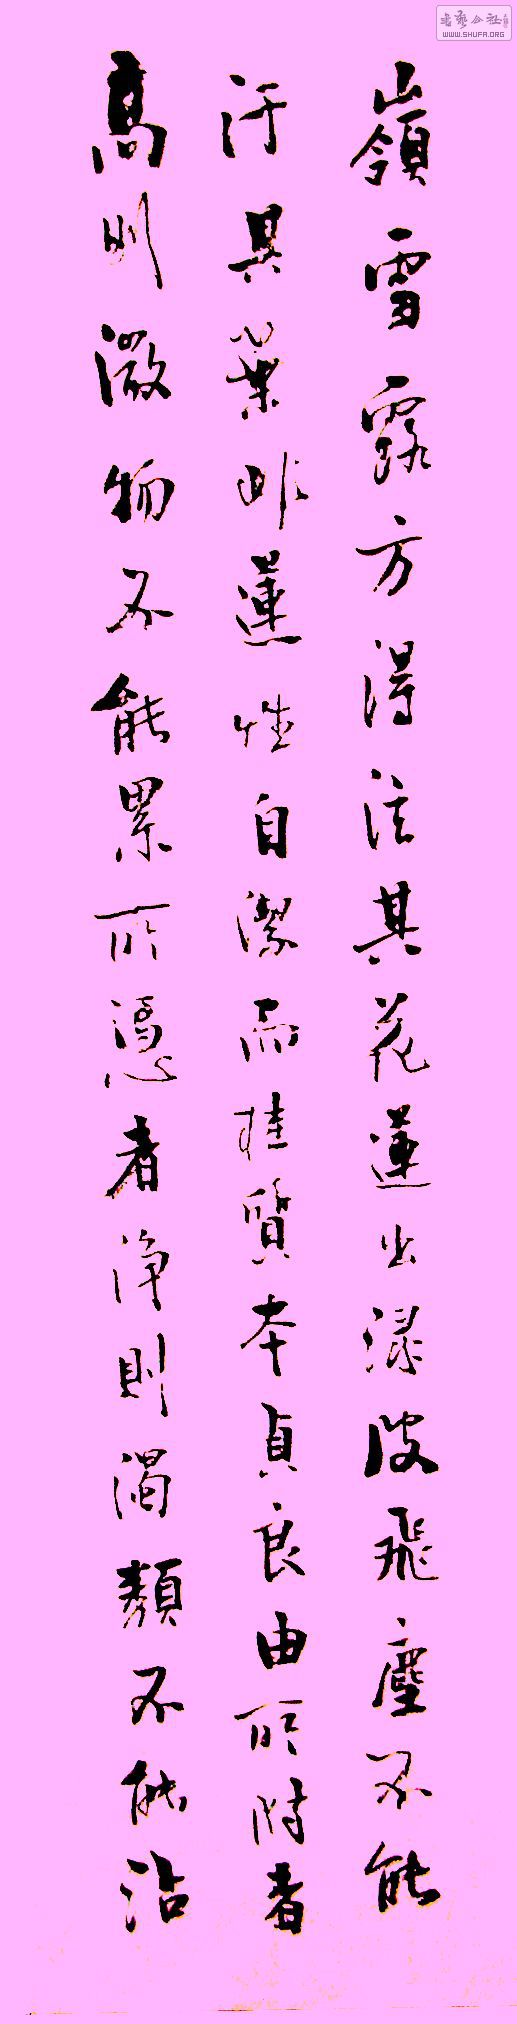 嶺雲露方得泫其花蓮出淥波飛塵不能
汙其葉非蓮性自潔而桂質本貞良由所附者
高則微物不能累所憑者淨則濁類不能沾
書藝公社
WWW.SHUFA.ORG